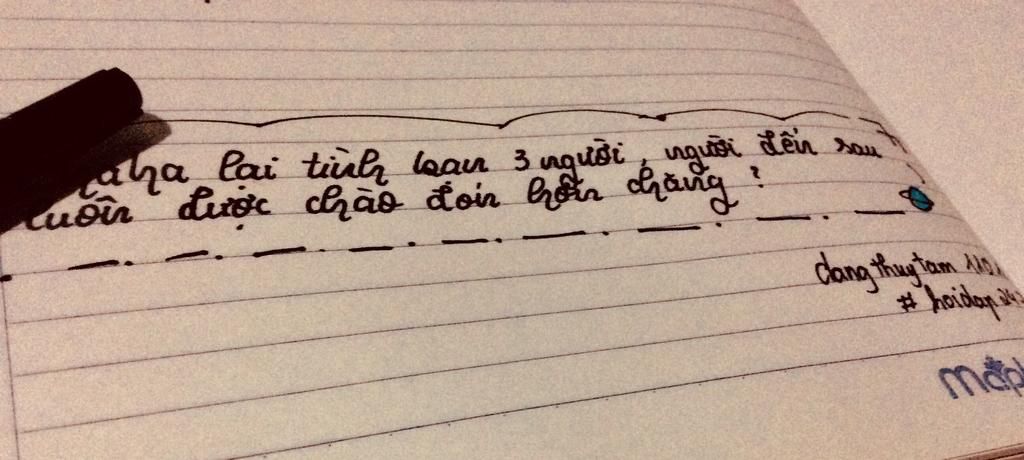 lại tình bạn 3 người, người đến sau
luôn được chào đón hơn chăng?
dangthuytam
# hoidap